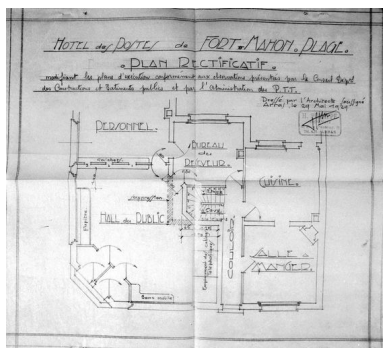 HOTEL des POSTES de FORT-MAHON-PLAGE.
PLAN RECTIFICATIF.
modifiant les plans d'exécution conformément aux observations présentées par le Conseil Gal
des Constructions et Bâtiments publics et par l'Administration des P.T.T.
Dressé par l'Architecte soussigné
Arras, le 29 Mai 1929
PERSONNEL.
BUREAU
du
RECEVEUR.
Guichets
CUISINE.
HALL du PUBLIC
Cave
SALLE à
MANGER.
Banc mobile